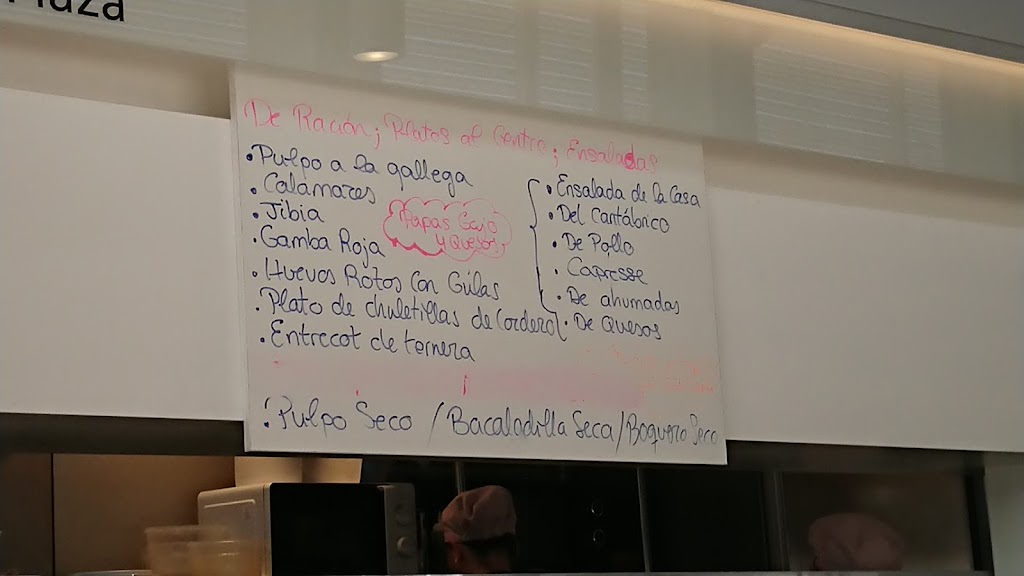 De Ración; Platos al Centro; Ensaladas
• Pulpo a la gallega
• Calamares
• Jibia
• Gamba Roja
• Huevos Rotos Con Gúlas
• Plato de chuletillas de Cordero
• Entrecot de ternera
Papas
y Quesos
• Ensalada de la Casa
• Del Cantábrico
• De Pollo
• Capresse
• De ahumadas
• De Quesos
Pulpo Seco / Bacaladilla Seca / Boquero Seco